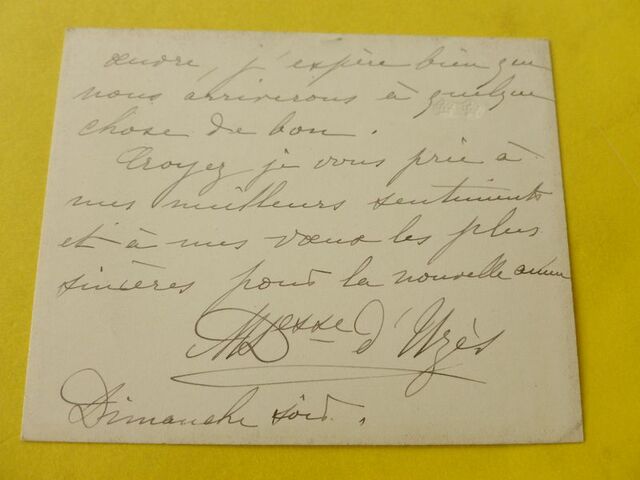 œuvre, j'espère bien que
nous arriverons à quelque
chose de bon.
Croyez je vous prie à
mes meilleurs sentiments
et à mes vœux les plus
sincères pour la nouvelle année
Desse d'Uzès
Dimanche soir.